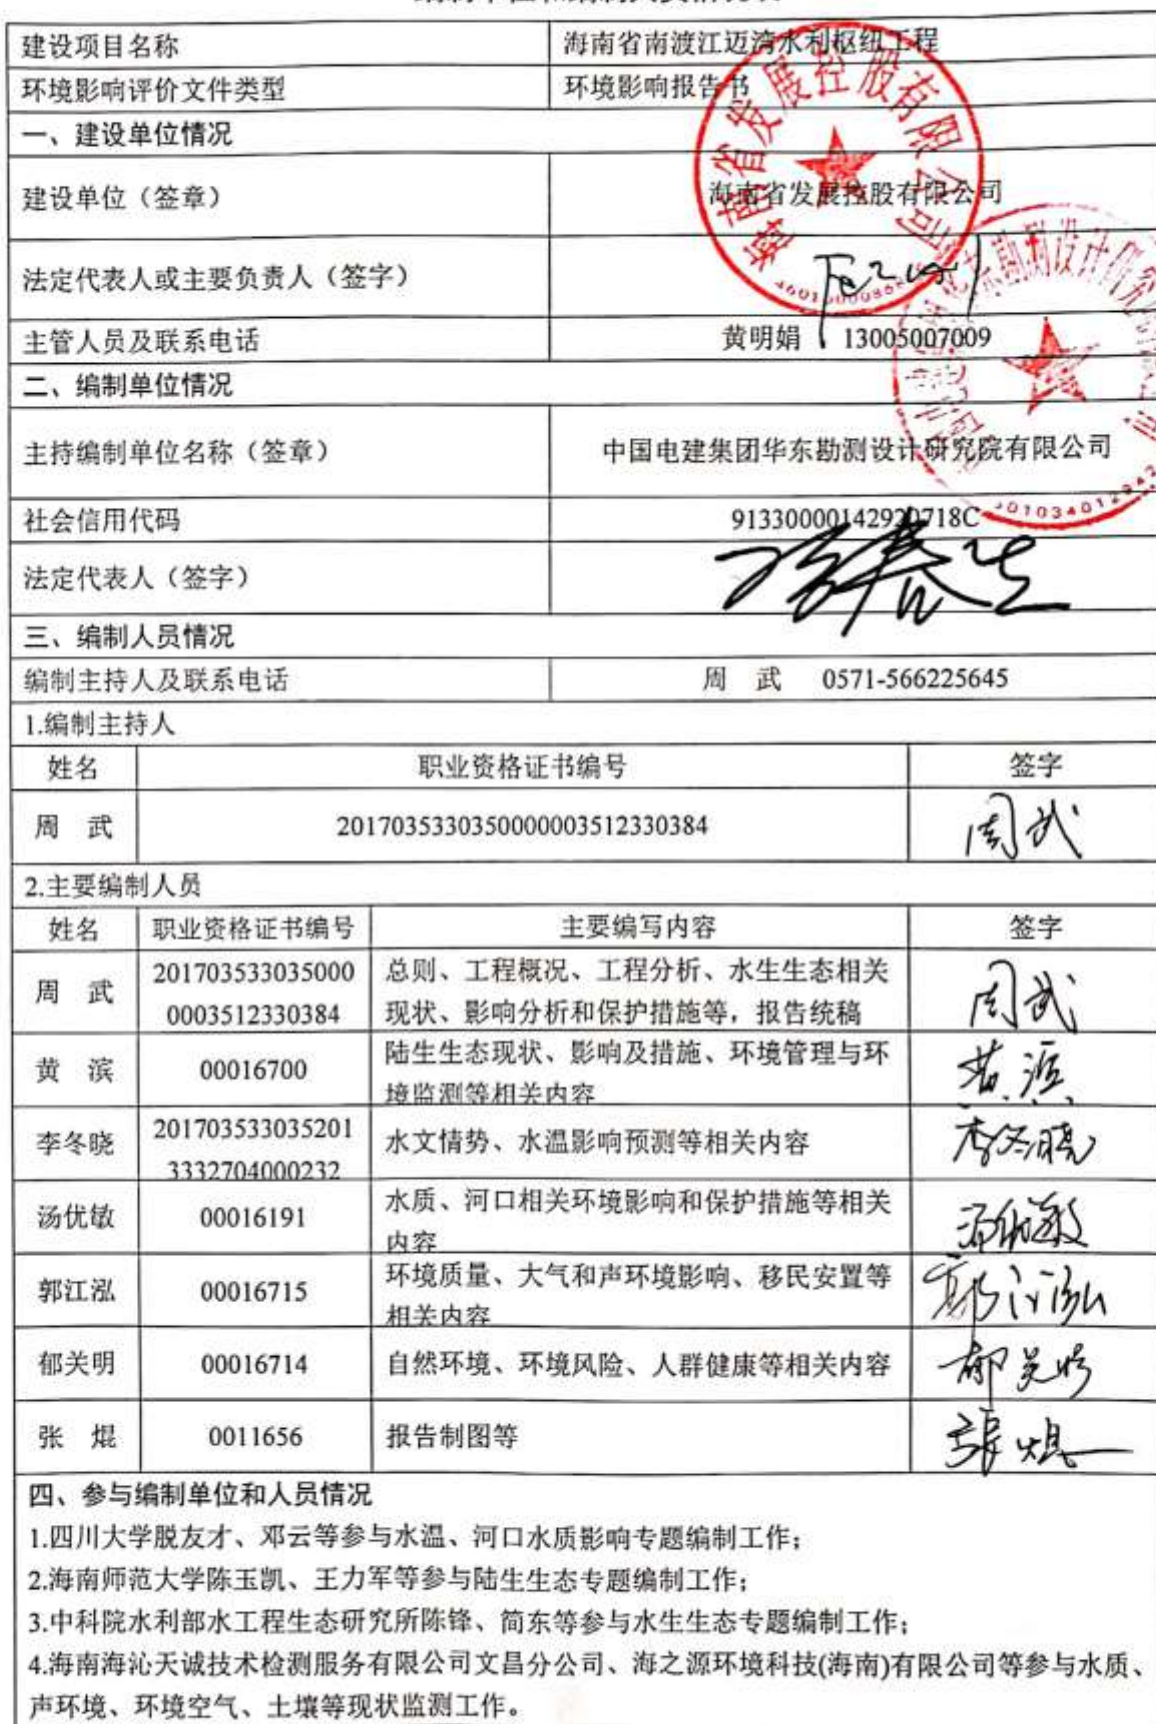 建设项目名称 海南省南渡江迈湾水利枢纽工程
环境影响评价文件类型 环境影响报告书
一、建设单位情况
建设单位（签章） 海南省发展控股有限公司
法定代表人或主要负责人（签字）
主管人员及联系电话 黄明娟 13005007009
二、编制单位情况
主持编制单位名称（签章） 中国电建集团华东勘测设计研究院有限公司
社会信用代码 91330000142920718C
法定代表人（签字）
三、编制人员情况
编制主持人及联系电话 周 武 0571-566225645
1.编制主持人
姓名 职业资格证书编号 签字
周 武 2017035330350000003512330384 周武
2.主要编制人员
姓名 职业资格证书编号 主要编写内容 签字
周 武 201703533035000 总则、工程概况、工程分析、水生生态相关 周武
0003512330384 现状、影响分析和保护措施等，报告统稿
黄 滨 00016700 陆生生态现状、影响及措施、环境管理与环 黄滨
境监测等相关内容
李冬晓 201703533035201 水文情势、水温影响预测等相关内容 李冬晓
3332704000232
汤优敏 00016191 水质、河口相关环境影响和保护措施等相关 汤优敏
内容
郭江泓 00016715 环境质量、大气和声环境影响、移民安置等 郭江泓
相关内容
郁关明 00016714 自然环境、环境风险、人群健康等相关内容 郁关明
张 焜 0011656 报告制图等 張焜
四、参与编制单位和人员情况
1.四川大学脱友才、邓云等参与水温、河口水质影响专题编制工作；
2.海南师范大学陈玉凯、王力军等参与陆生生态专题编制工作；
3.中科院水利部水工程生态研究所陈锋、简东等参与水生生态专题编制工作；
4.海南海沁天诚技术检测服务有限公司文昌分公司、海之源环境科技(海南)有限公司等参与水质、
声环境、环境空气、土壤等现状监测工作。
海南省发展控股有限公司